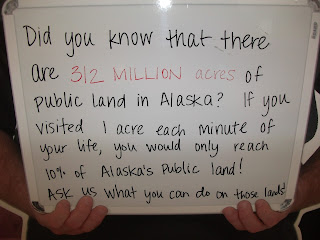 Did you know that there
are 312 MILLION acres of
public land in Alaska? If you
visited 1 acre each minute of
your life, you would only reach
10% of Alaska's Public land!
Ask us what you can do on those lands!